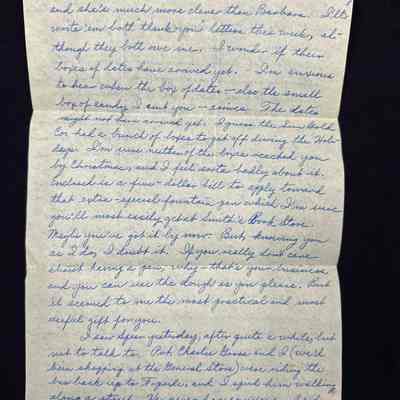 and she's much more clever than Barbara. I'll
write 'em both "thank you" letters this week, al-
though they both owe me. I wonder if their
boxes of dates have arrived yet. I'm anxious
to hear when the box of dates – also the small
box of candy I sent you – arrives. The dates
might not have arrived yet. I guess the Sun Gold
Co. had a bunch of boxes to get off during the Holi-
days. I'm sure neither of the boxes reached you
by Christmas, and I feel sorta badly about it.
Enclosed is a five-dollar bill to apply toward
that extra-special fountain pen which I'm sure
you'll most easily get at Smith's Book Store.
Maybe you've got it by now. But, knowing you
as I do, I doubt it. If you really don't care
about having a pen, why – that's your business,
and you can use the dough as you please. But
it seemed to me the most practical and most
useful gift for you.
I saw yesterday, after quite a while, but
not to talk to. Pvt. Charlie and I (we'd
been shopping at the General Store) were riding the
bus back up to and I spied him walking
along a street.